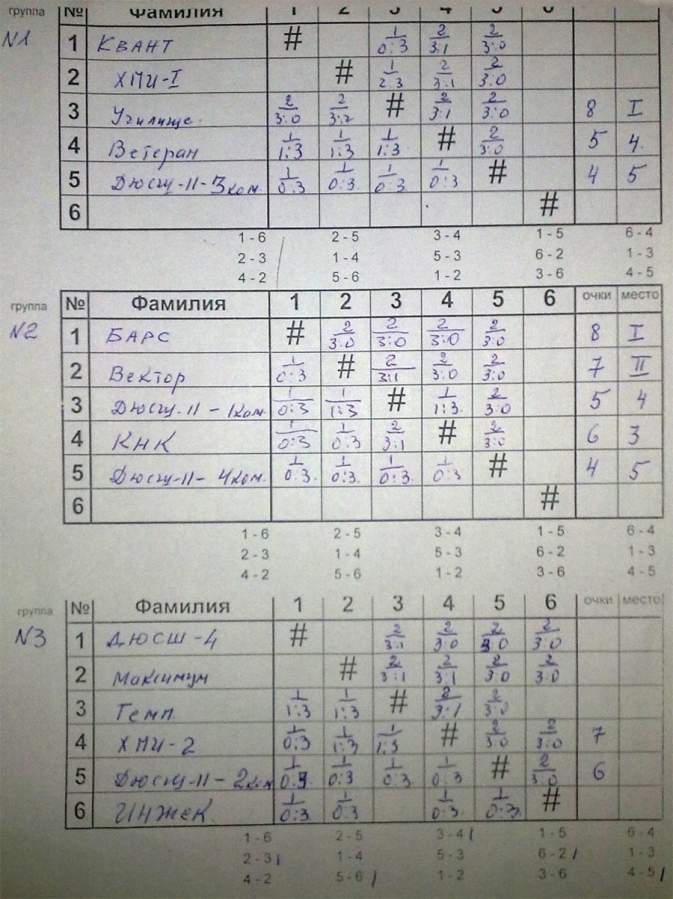 группа № Фамилия 1 2 3 4 5 6
N1 1 КВАНТ # 1/0:3 2/3:1 2/3:0
2 ХМИ-I # 1/2:3 2/3:1 2/3:0
3 Училище 2/3:0 2/3:2 # 2/3:1 2/3:0 8 I
4 Ветеран 1/1:3 1/1:3 1/1:3 # 2/3:0 5 4
5 Дюсш-11-3ком. 1/0:3 1/0:3 1/0:3 1/0:3 # 4 5
6 #
1-6 2-5 3-4 1-5 6-4
2-3 1-4 5-3 6-2 1-3
4-2 5-6 1-2 3-6 4-5
группа № Фамилия 1 2 3 4 5 6 очки место
N2 1 БАРС # 2/3:0 2/3:0 2/3:0 2/3:0 8 I
2 Вектор 1/0:3 # 2/3:1 2/3:0 2/3:0 7 II
3 Дюсш-11-1ком. 1/0:3 1/1:3 # 1/1:3 2/3:0 5 4
4 КНК 1/0:3 1/0:3 2/3:1 # 2/3:0 6 3
5 Дюсш-11-4ком. 1/0:3 1/0:3 1/0:3 1/0:3 # 4 5
6 #
1-6 2-5 3-4 1-5 6-4
2-3 1-4 5-3 6-2 1-3
4-2 5-6 1-2 3-6 4-5
группа № Фамилия 1 2 3 4 5 6 очки место
N3 1 ДЮСШ-4 # 2/3:1 2/3:0 2/3:0 2/3:0
2 Максимум # 2/3:1 2/3:1 2/3:0 2/3:0
3 Темп 1/1:3 1/1:3 # 2/3:1 2/3:0
4 ХМИ-2 1/0:3 1/1:3 1/1:3 # 2/3:0 2/3:0 7
5 Дюсш-11-2ком 1/0:3 1/0:3 1/0:3 1/0:3 # 2/3:0 6
6 ИНЖЕК. 1/0:3 1/0:3 1/0:3 1/0:3 #
1-6 2-5 3-4 1-5 6-4
2-3 1-4 5-3 6-2 1-3
4-2 5-6 1-2 3-6 4-5